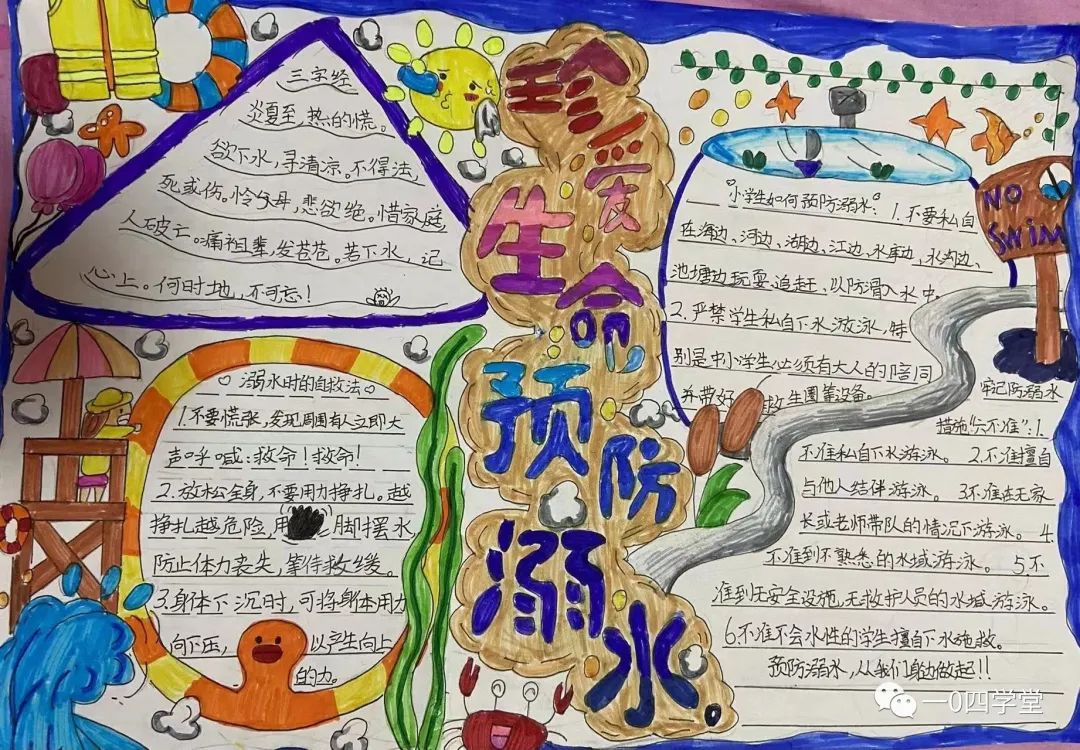 三字经
炎夏至,热的慌。
欲下水,寻清凉。不得法,
死或伤。怜父母,悲欲绝。惜家庭
人破亡。痛祖辈,发苍苍。若下水,记
心上。何时地,不可忘!
溺水时的自救法
1.不要慌张,发现周围有人立即大
声呼喊:救命!救命!
2.放松全身,不要用力挣扎。越
挣扎越危险,用 脚摆水
防止体力丧失,等待救缓。
3.身体下沉时,可将身体用力
向下压, 以产生向上
的力。
珍爱
生命
预防
溺水
小学生如何预防溺水:1.不要私自
在海边、河边、湖边、江边、水库边,水沟边、
池塘边玩耍、追赶、以防滑入水中。
2.严禁学生私自下水游泳,特
别是中小学生必须有大人的陪同
并带好 救生圈等设备。
NO
SWIM
牢记防溺水
措施"六不准":1.
不准私自下水游泳。2.不准擅自
与他人结伴游泳。3不准在无家
长或老师带队的情况下游泳。4
不准到不熟悉的水域游泳。5不
准到无安全设施,无救护人员的水域游泳。
6不准不会水性的学生擅自下水施救。
预防溺水,从我们身边做起!!
一0四学堂